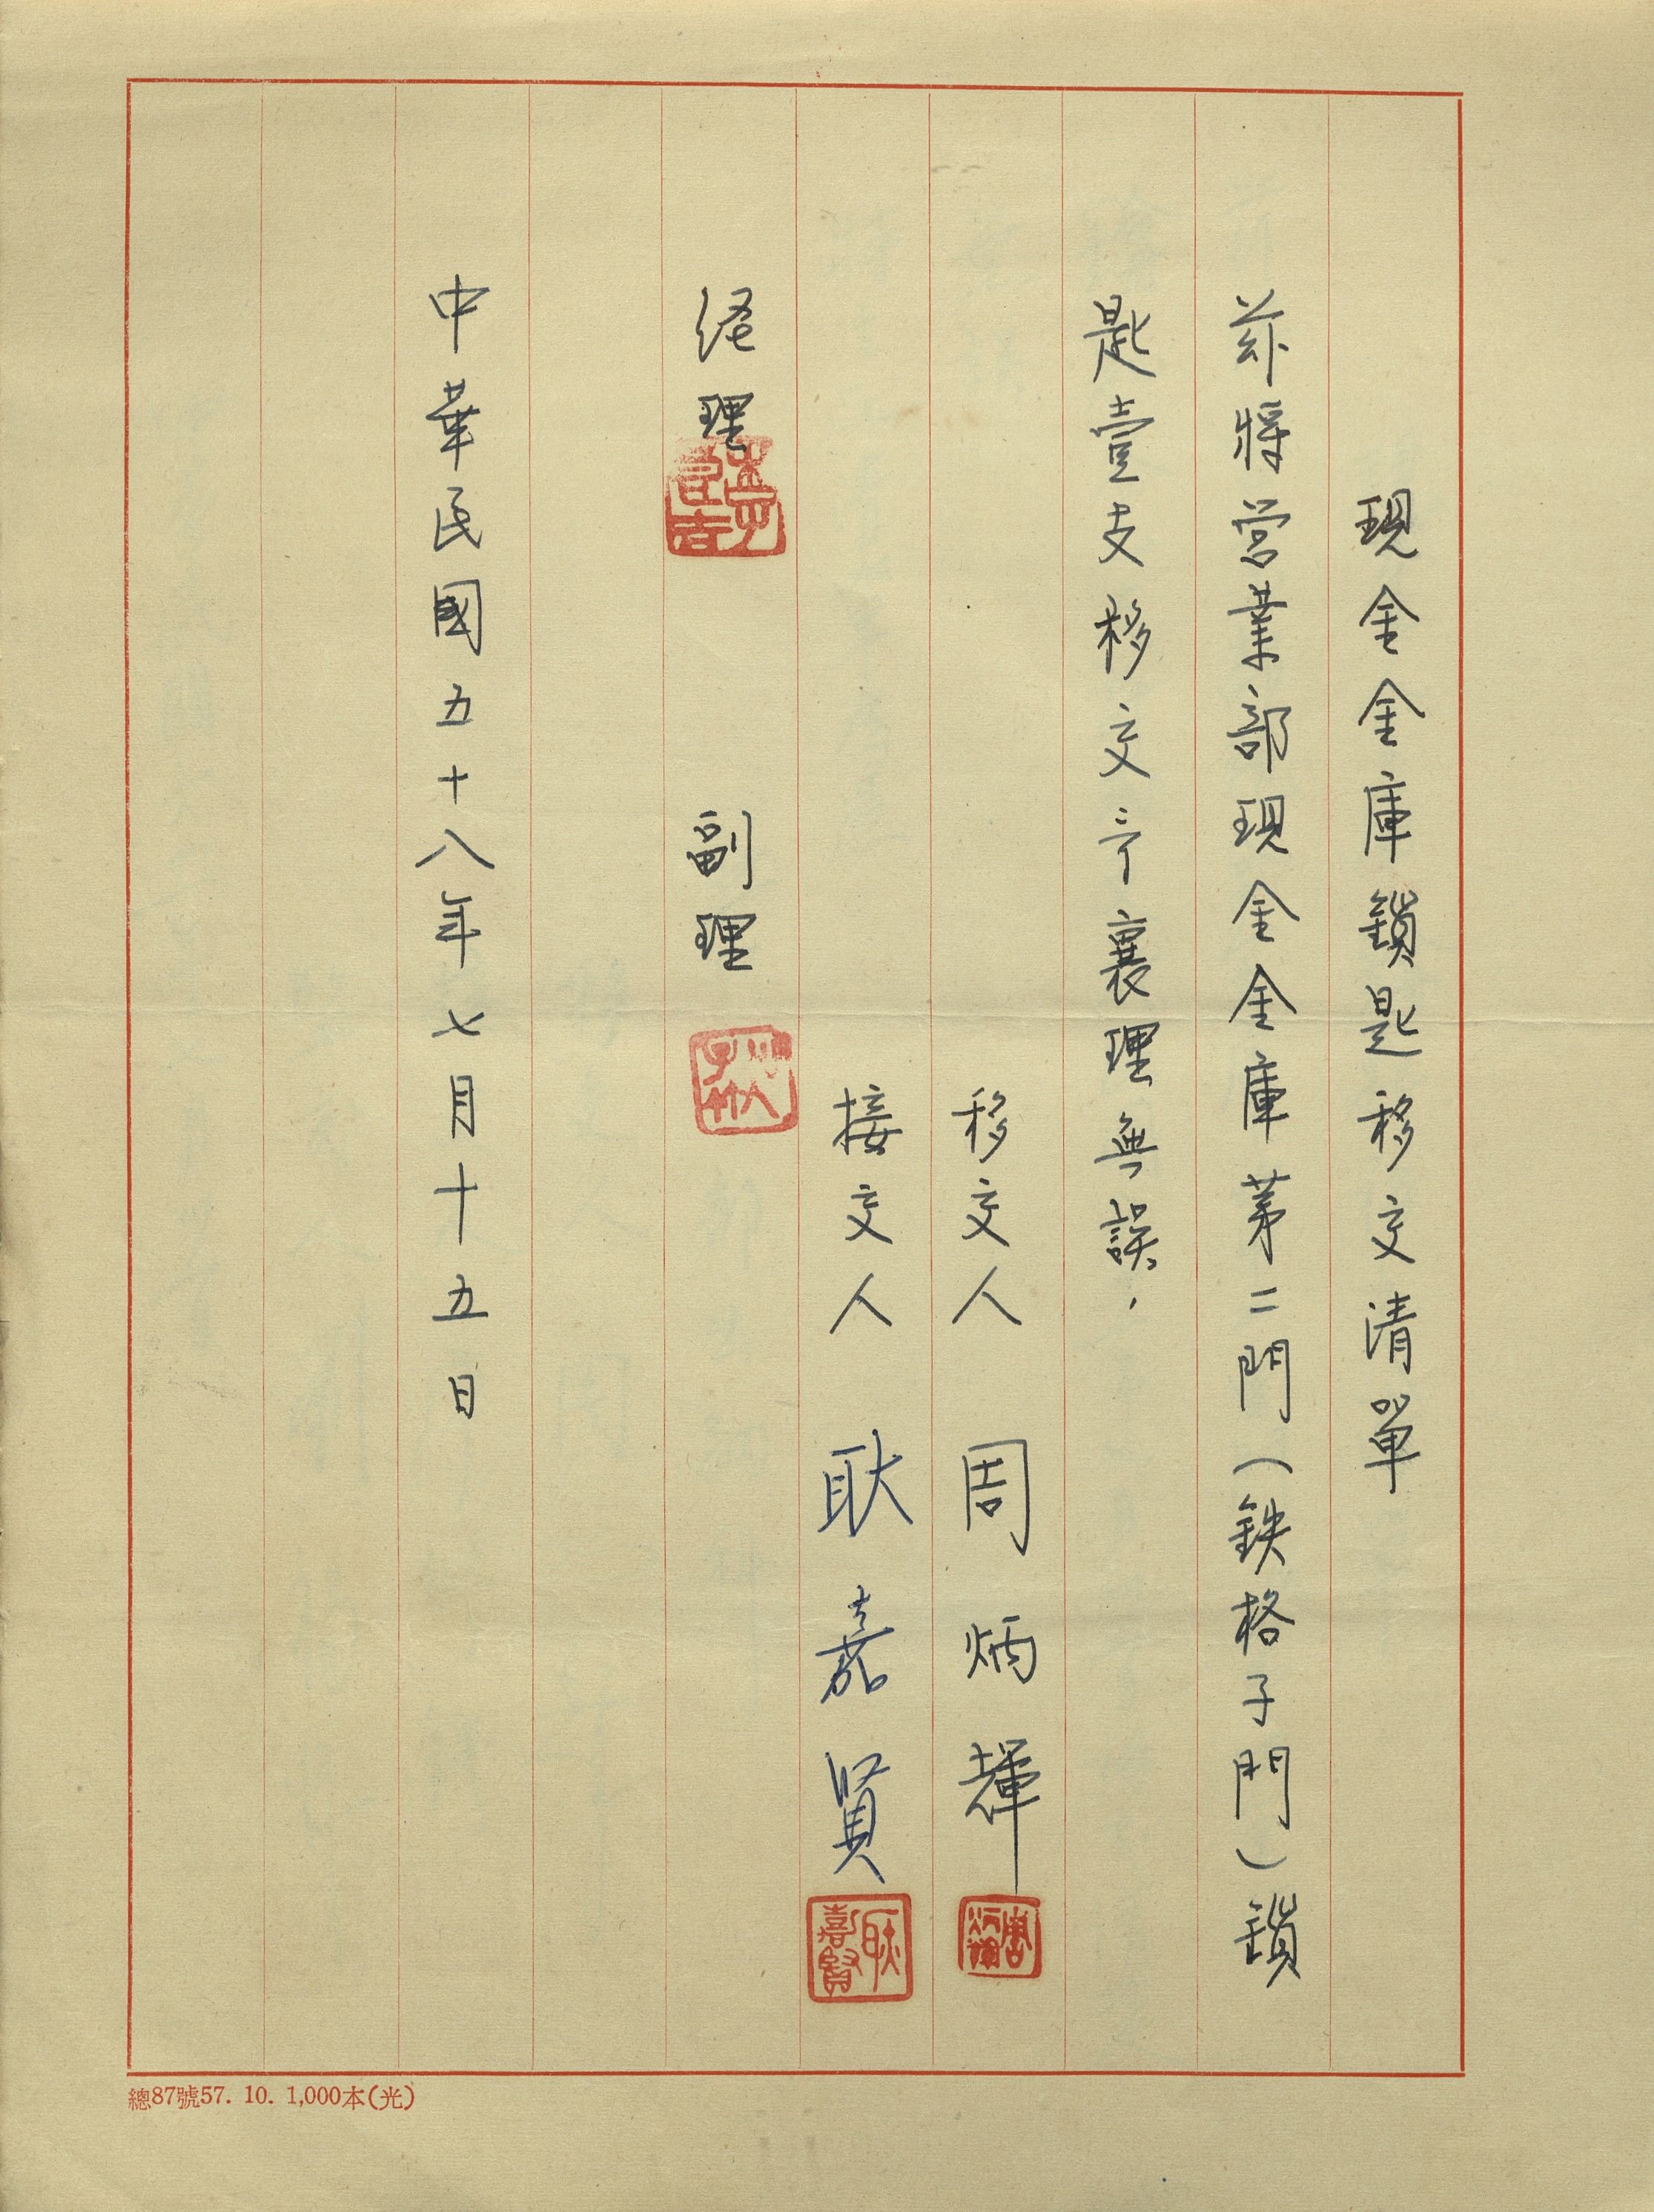 現金金庫鎖匙移交清單
茲將営業部現金金庫第二門(鉄格子門)鎖
匙壹支移交襄理無誤,
移交人 周炳輝
接交人 耿嘉賢
耿嘉賢
經理 副理
中華民國五十八年七月十五日
總87號57. 10. 1,000本(光)